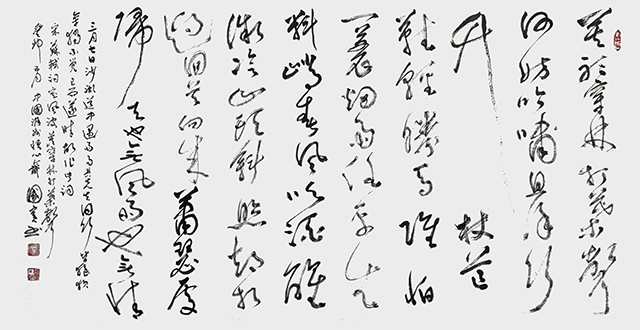 莫聽穿林打葉聲
何妨吟嘯且徐行
竹杖芒
鞋輕勝馬誰怕
一蓑煙雨任平生
料峭春風吹酒醒
微冷山頭斜照卻相
迎回首向來蕭瑟處
歸去也無風雨也無晴
三月七日沙湖道中遇雨雨具先去同行皆狼狽
余獨不覺已而遂晴故作此詞
宋蘇軾詞定風波莫聽穿林打葉聲
癸卯